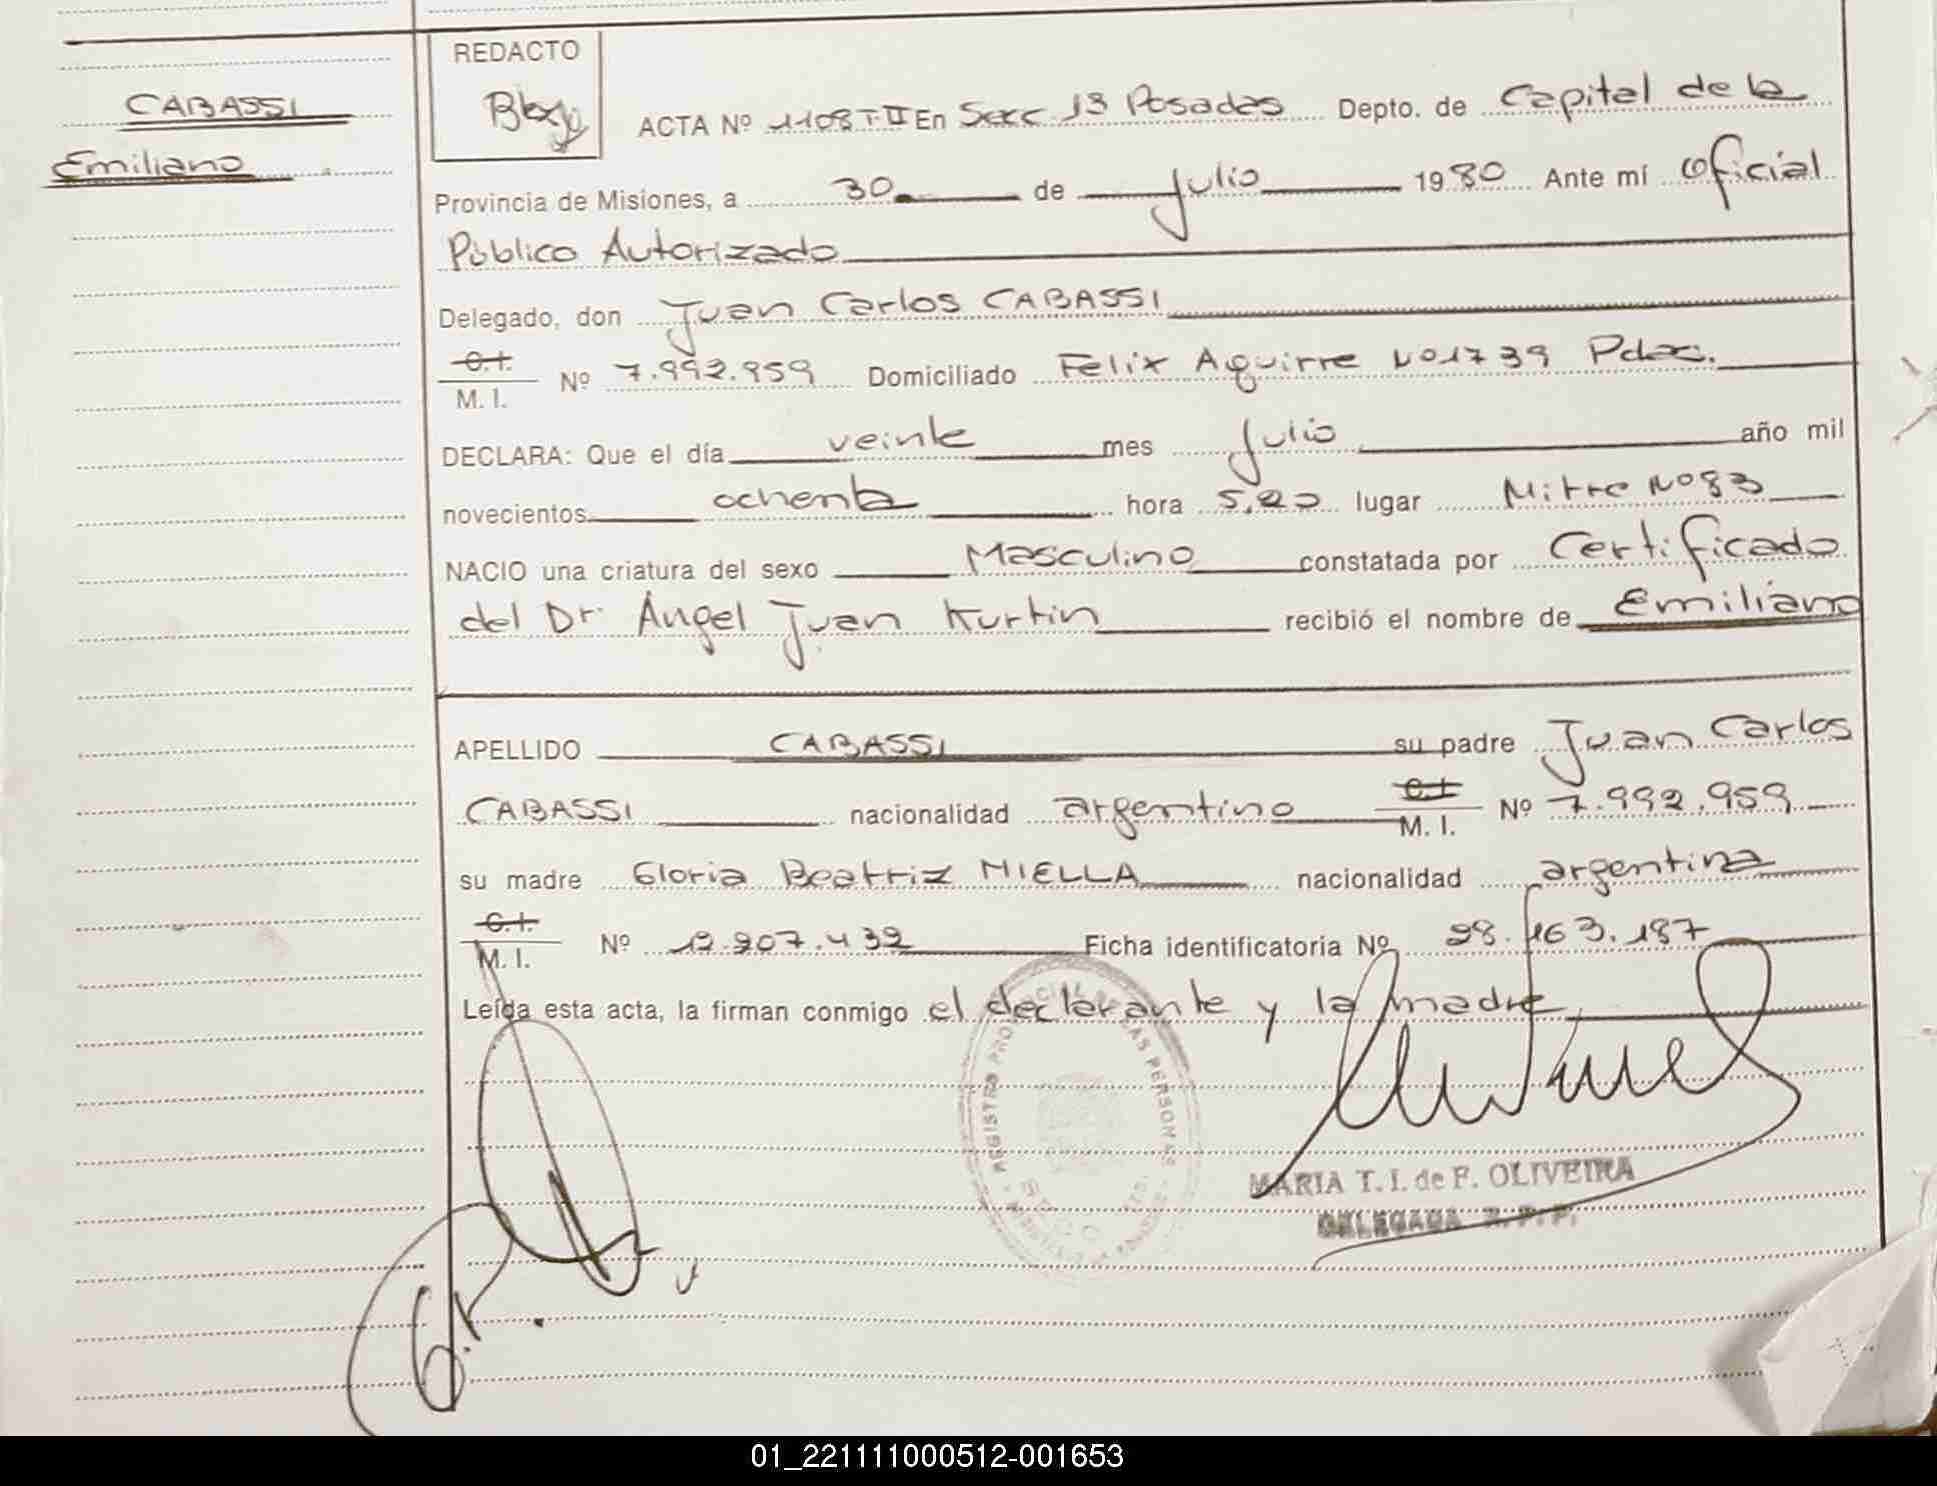 CABASSI
Emiliano
REDACTO
ACTA Nº 1108 T-II En Secc. 13 Posadas Depto. de Capital de la
Provincia de Misiones, a 30 de Julio 1980 Ante mí Oficial
Público Autorizado
Delegado, don Juan Carlos CABASSI
C.I.
M. I. Nº 7.992.959 Domiciliado Felix Aguirre Nº 1739 Pdas.
DECLARA: Que el día veinte mes Julio año mil
novecientos ochenta hora 5,20 lugar Mitre Nº 83
NACIO una criatura del sexo Masculino constatada por Certificado
del Dr. Ángel Juan Kurtin recibió el nombre de Emiliano
APELLIDO CABASSI su padre Juan Carlos
CABASSI nacionalidad argentino C.I. M. I. Nº 7.992.959
su madre Gloria Beatriz MIELLA nacionalidad argentina
C.I.
M. I. Nº 12.207.432 Ficha identificatoria Nº 28.163.187
Leída esta acta, la firman conmigo el declarante y la madre,
REGISTRO PROVINCIAL DE LAS PERSONAS
MARIA T. I. de F. OLIVEIRA
DELEGADA R. P. P.
01_221111000512-001653